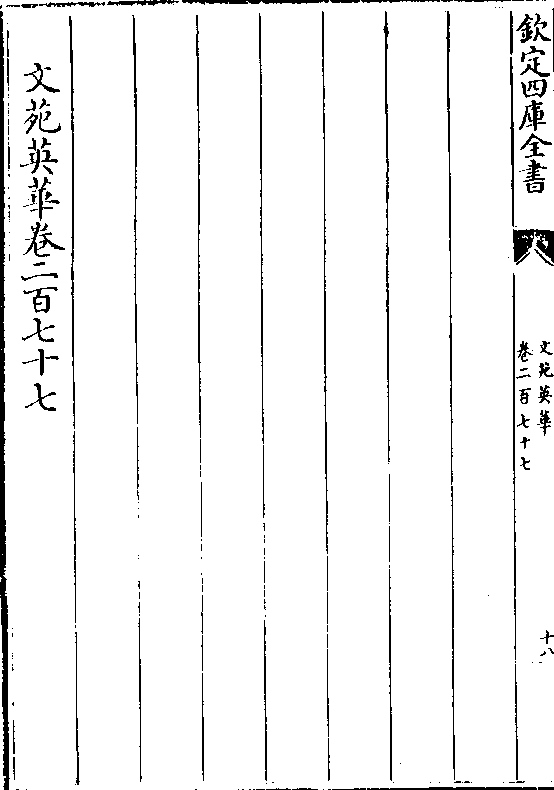 欽定四庫全書
文苑英華
卷二百七十七
十八
文苑英華卷二百七十七